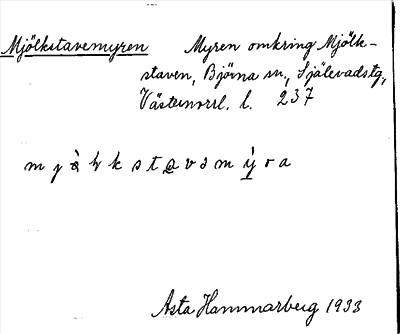 Mjölkstavemyren Myren omkring Mjölk-
staven, Björna sn, Själevadstg,
Västernorrl. l. 237
Asta Hammarberg 1933